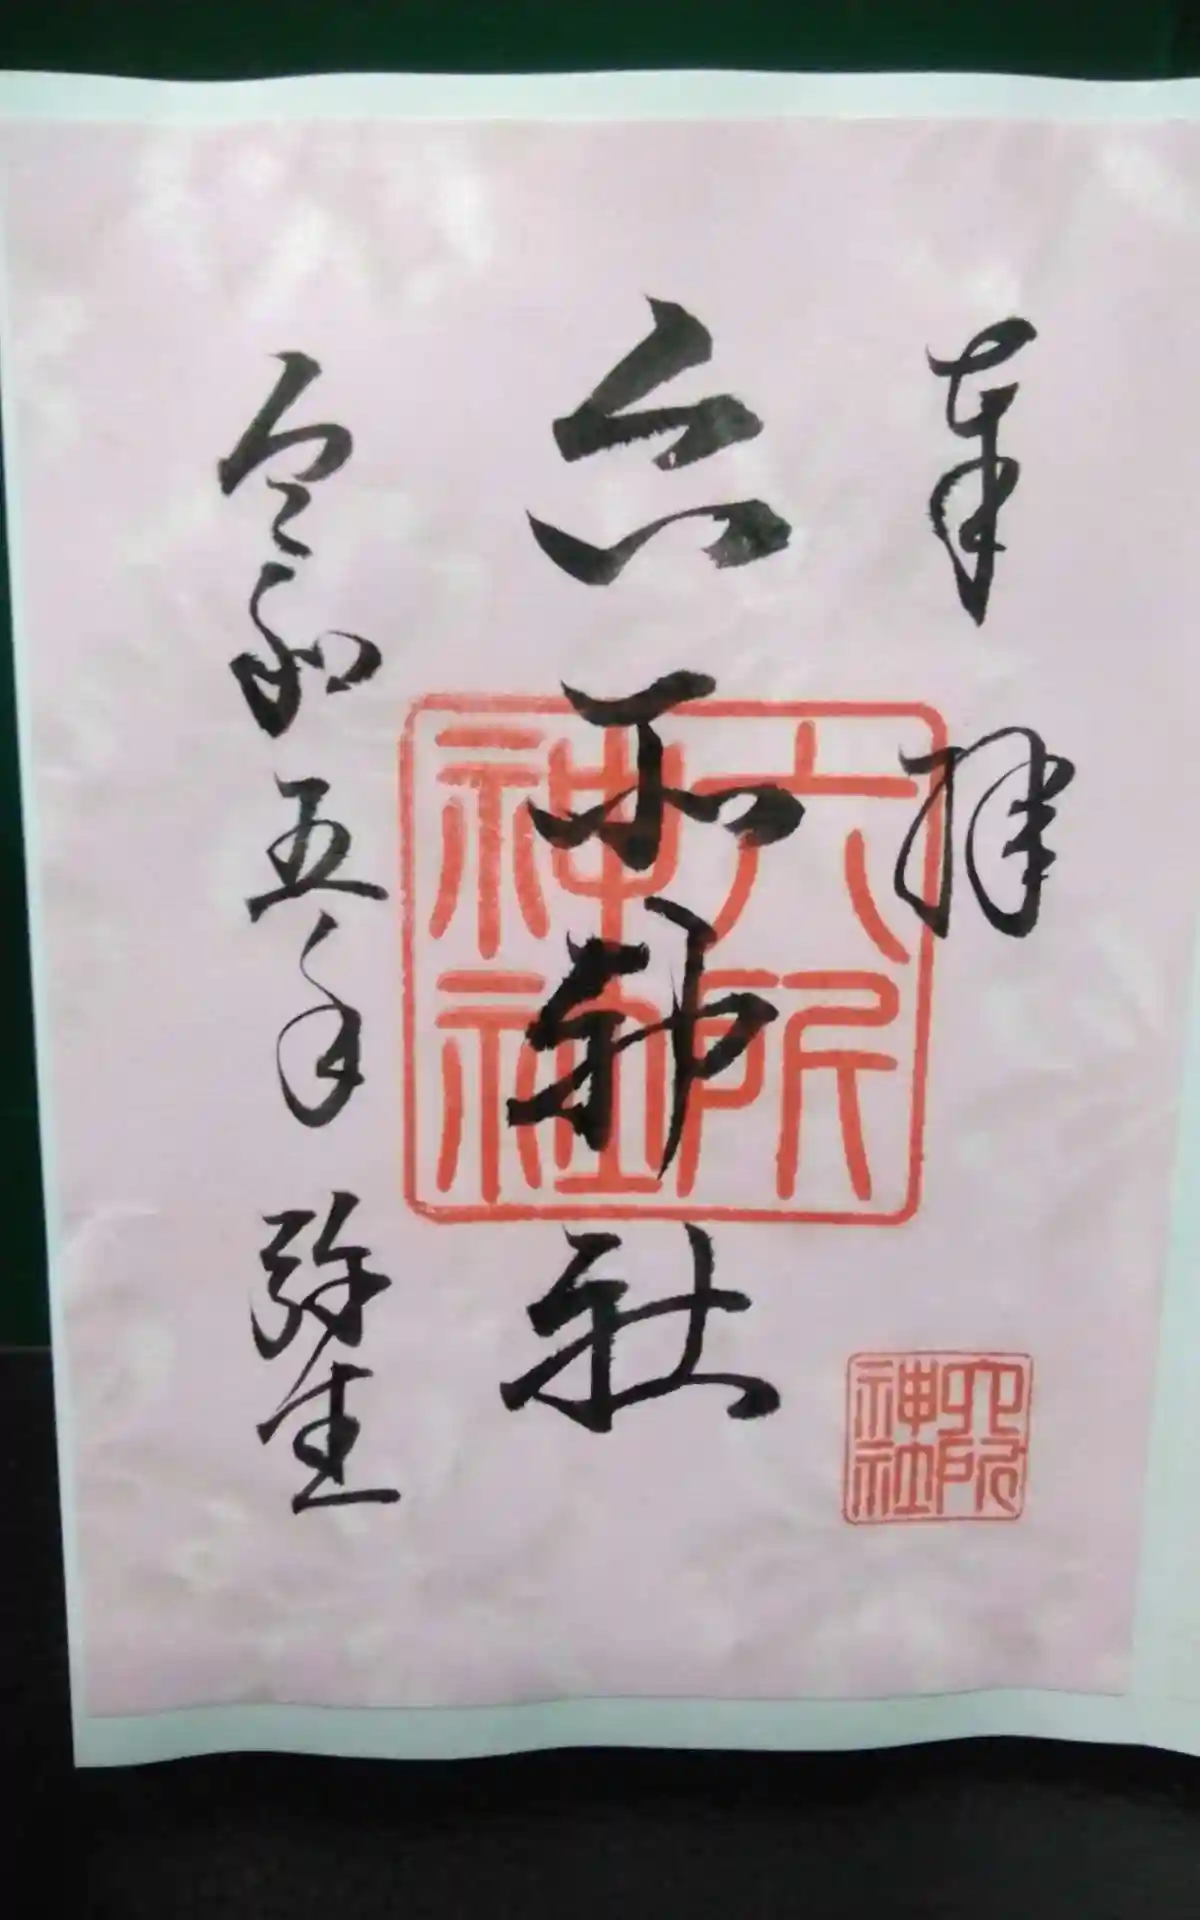 奉拝
六所神社
六所神社
令和五年弥生
六所神社